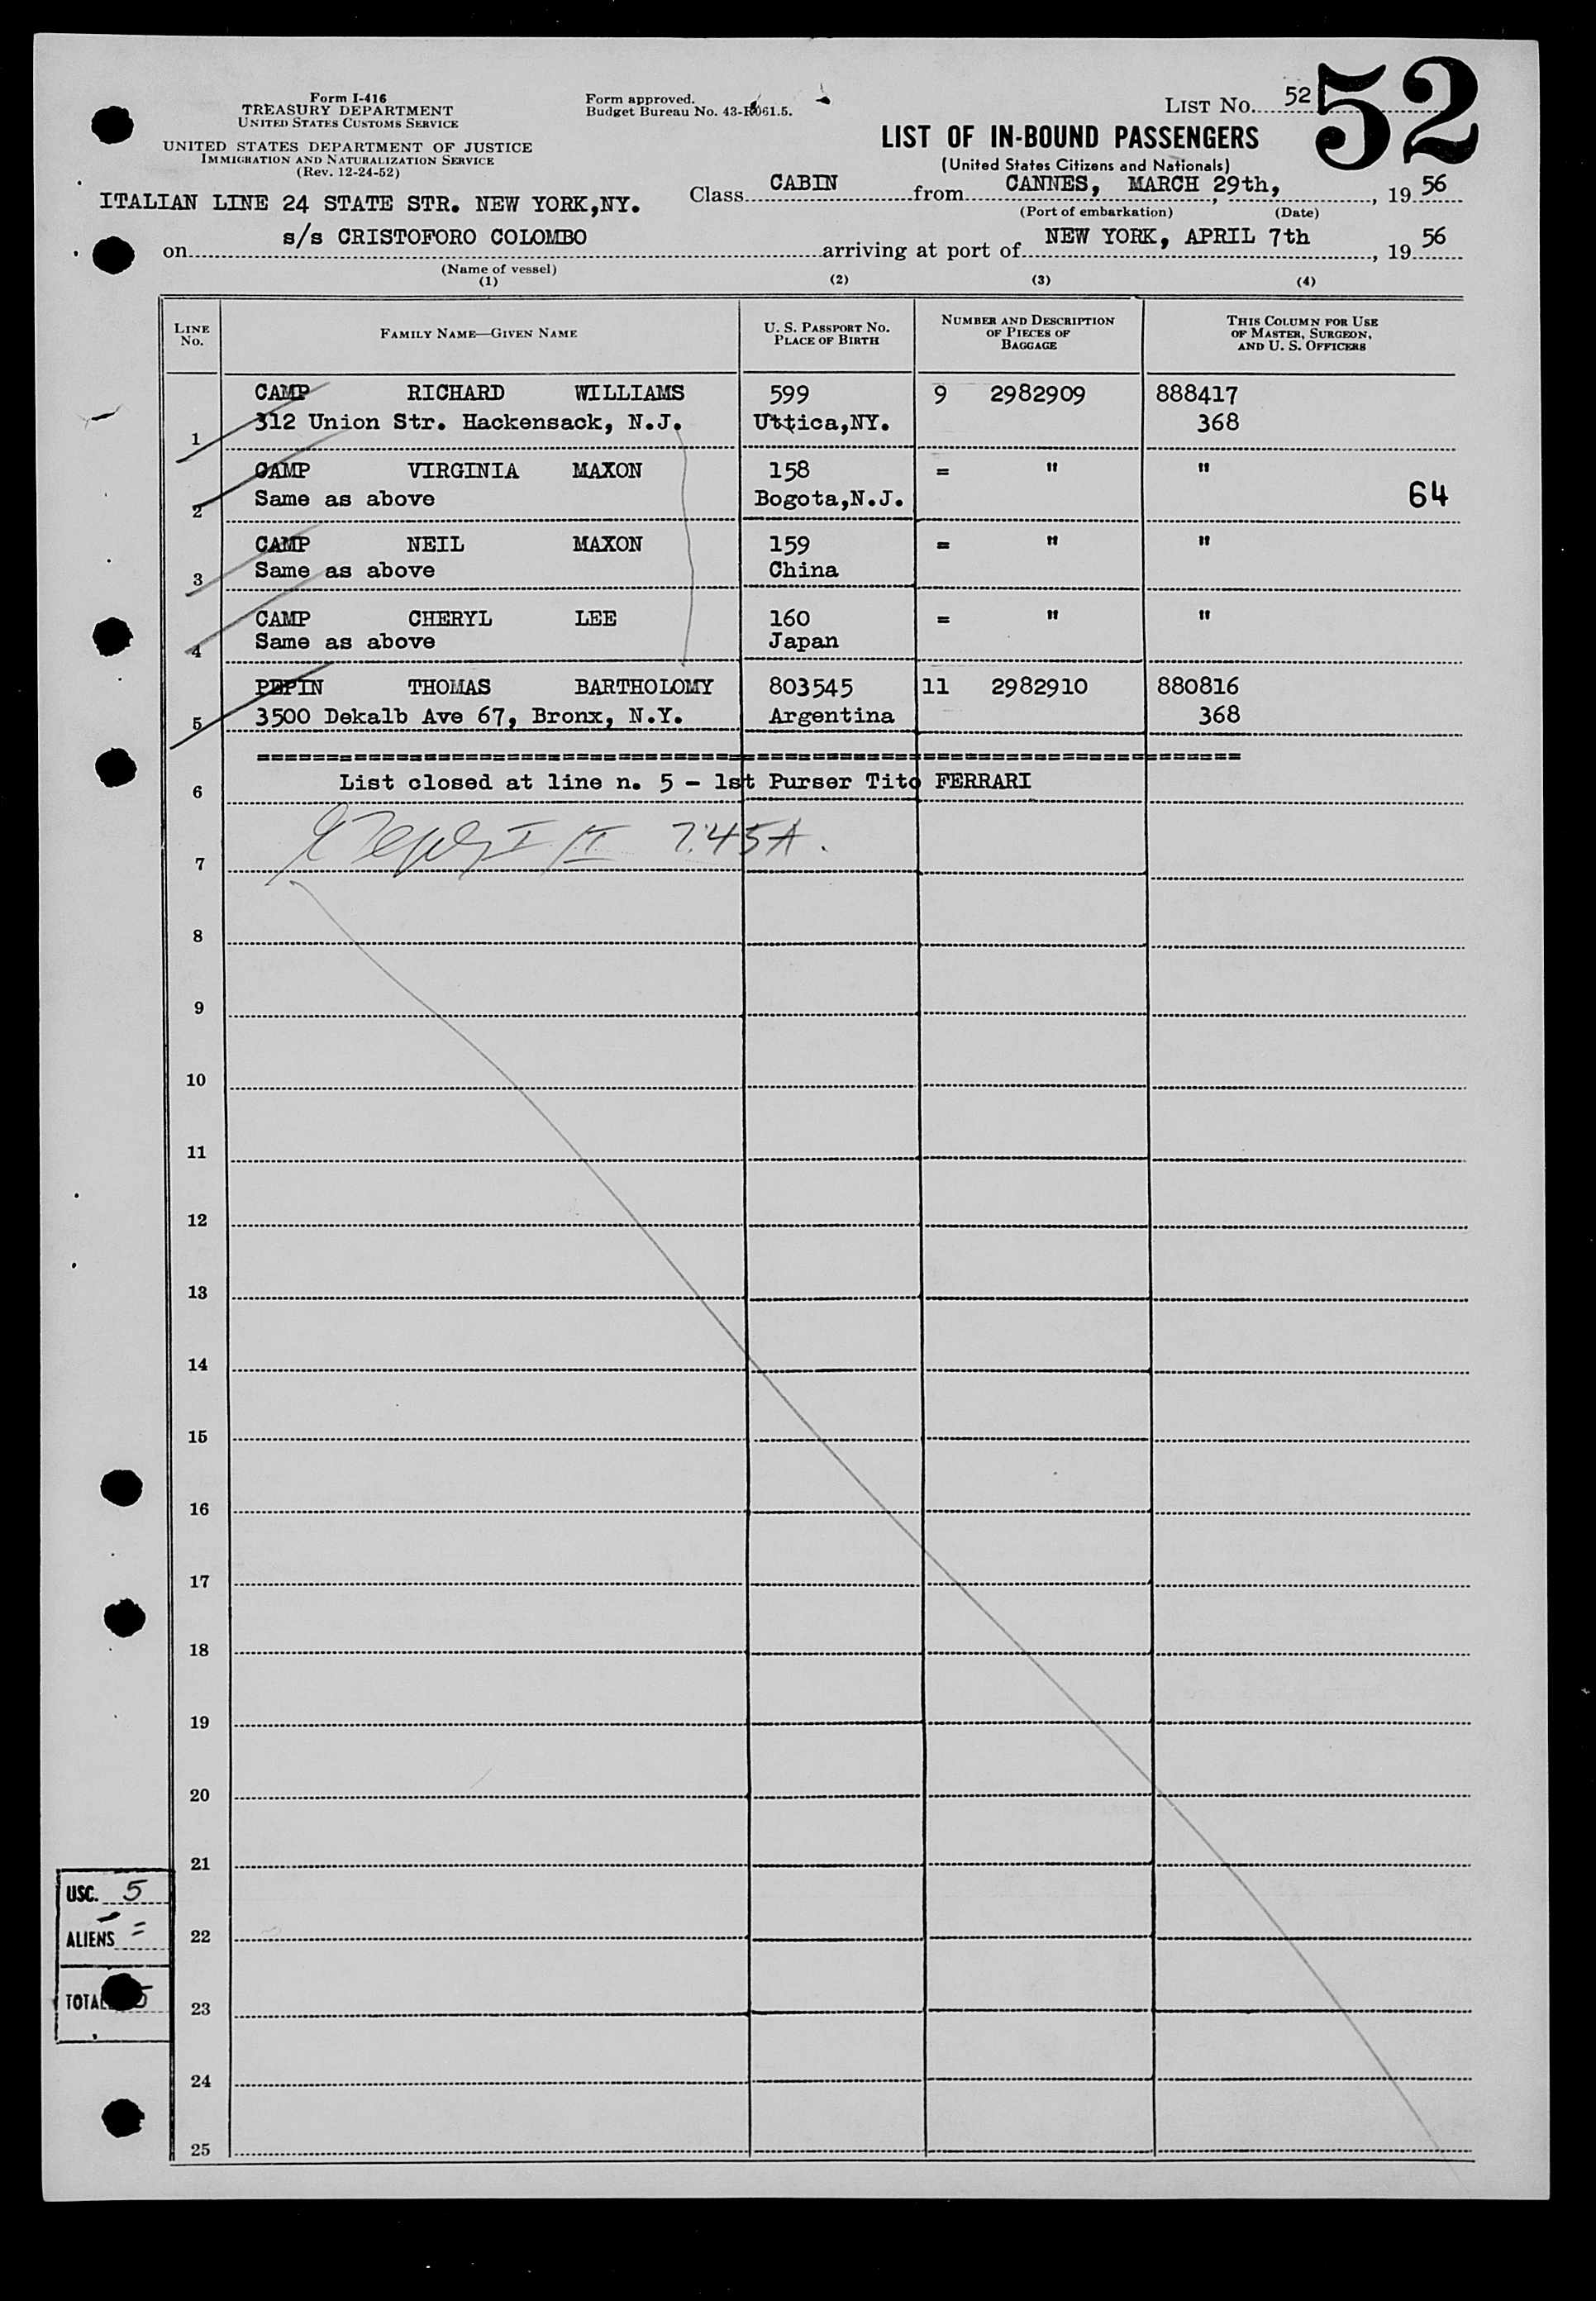 Form I-416
TREASURY DEPARTMENT
UNITED STATES CUSTOMS SERVICE
UNITED STATES DEPARTMENT OF JUSTICE
IMMIGRATION AND NATURALIZATION SERVICE
(Rev. 12-24-52)
Form approved.
Budget Bureau No. 43-R061.5.
LIST NO. 52
52
LIST OF IN-BOUND PASSENGERS
(United States Citizens and Nationals)
ITALIAN LINE 24 STATE STR. NEW YORK,NY.
Class CABIN from CANNES, MARCH 29th, , 19 56
(Port of embarkation) (Date)
on s/s CRISTOFORO COLOMBO arriving at port of NEW YORK, APRIL 7th , 19 56
(Name of vessel)
(1) (2) (3) (4)
LINE No. FAMILY NAME—GIVEN NAME U. S. PASSPORT NO. PLACE OF BIRTH NUMBER AND DESCRIPTION OF PIECES OF BAGGAGE THIS COLUMN FOR USE OF MASTER, SURGEON, AND U. S. OFFICERS
CAMP RICHARD WILLIAMS 599 9 2982909 888417
1 312 Union Str. Hackensack, N.J. Uttica,NY. 368
CAMP VIRGINIA MAXON 158 = " "
2 Same as above Bogota,N.J. 64
CAMP NEIL MAXON 159 = " "
3 Same as above China
CAMP CHERYL LEE 160 = " "
4 Same as above Japan
PEPIN THOMAS BARTHOLOMY 803545 11 2982910 880816
5 3500 Dekalb Ave 67, Bronx, N.Y. Argentina 368
=====================================================================================
6 List closed at line n. 5 - 1st Purser Tito FERRARI
7 7.45A.
8
9
10
11
12
13
14
15
16
17
18
19
20
21
USC. 5
22
ALIENS =
23
TOTAL 5
24
25